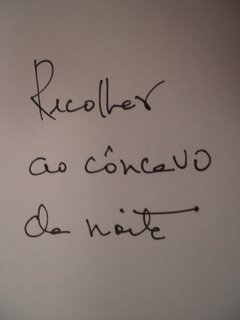 Recolher
ao côncavo
da noite